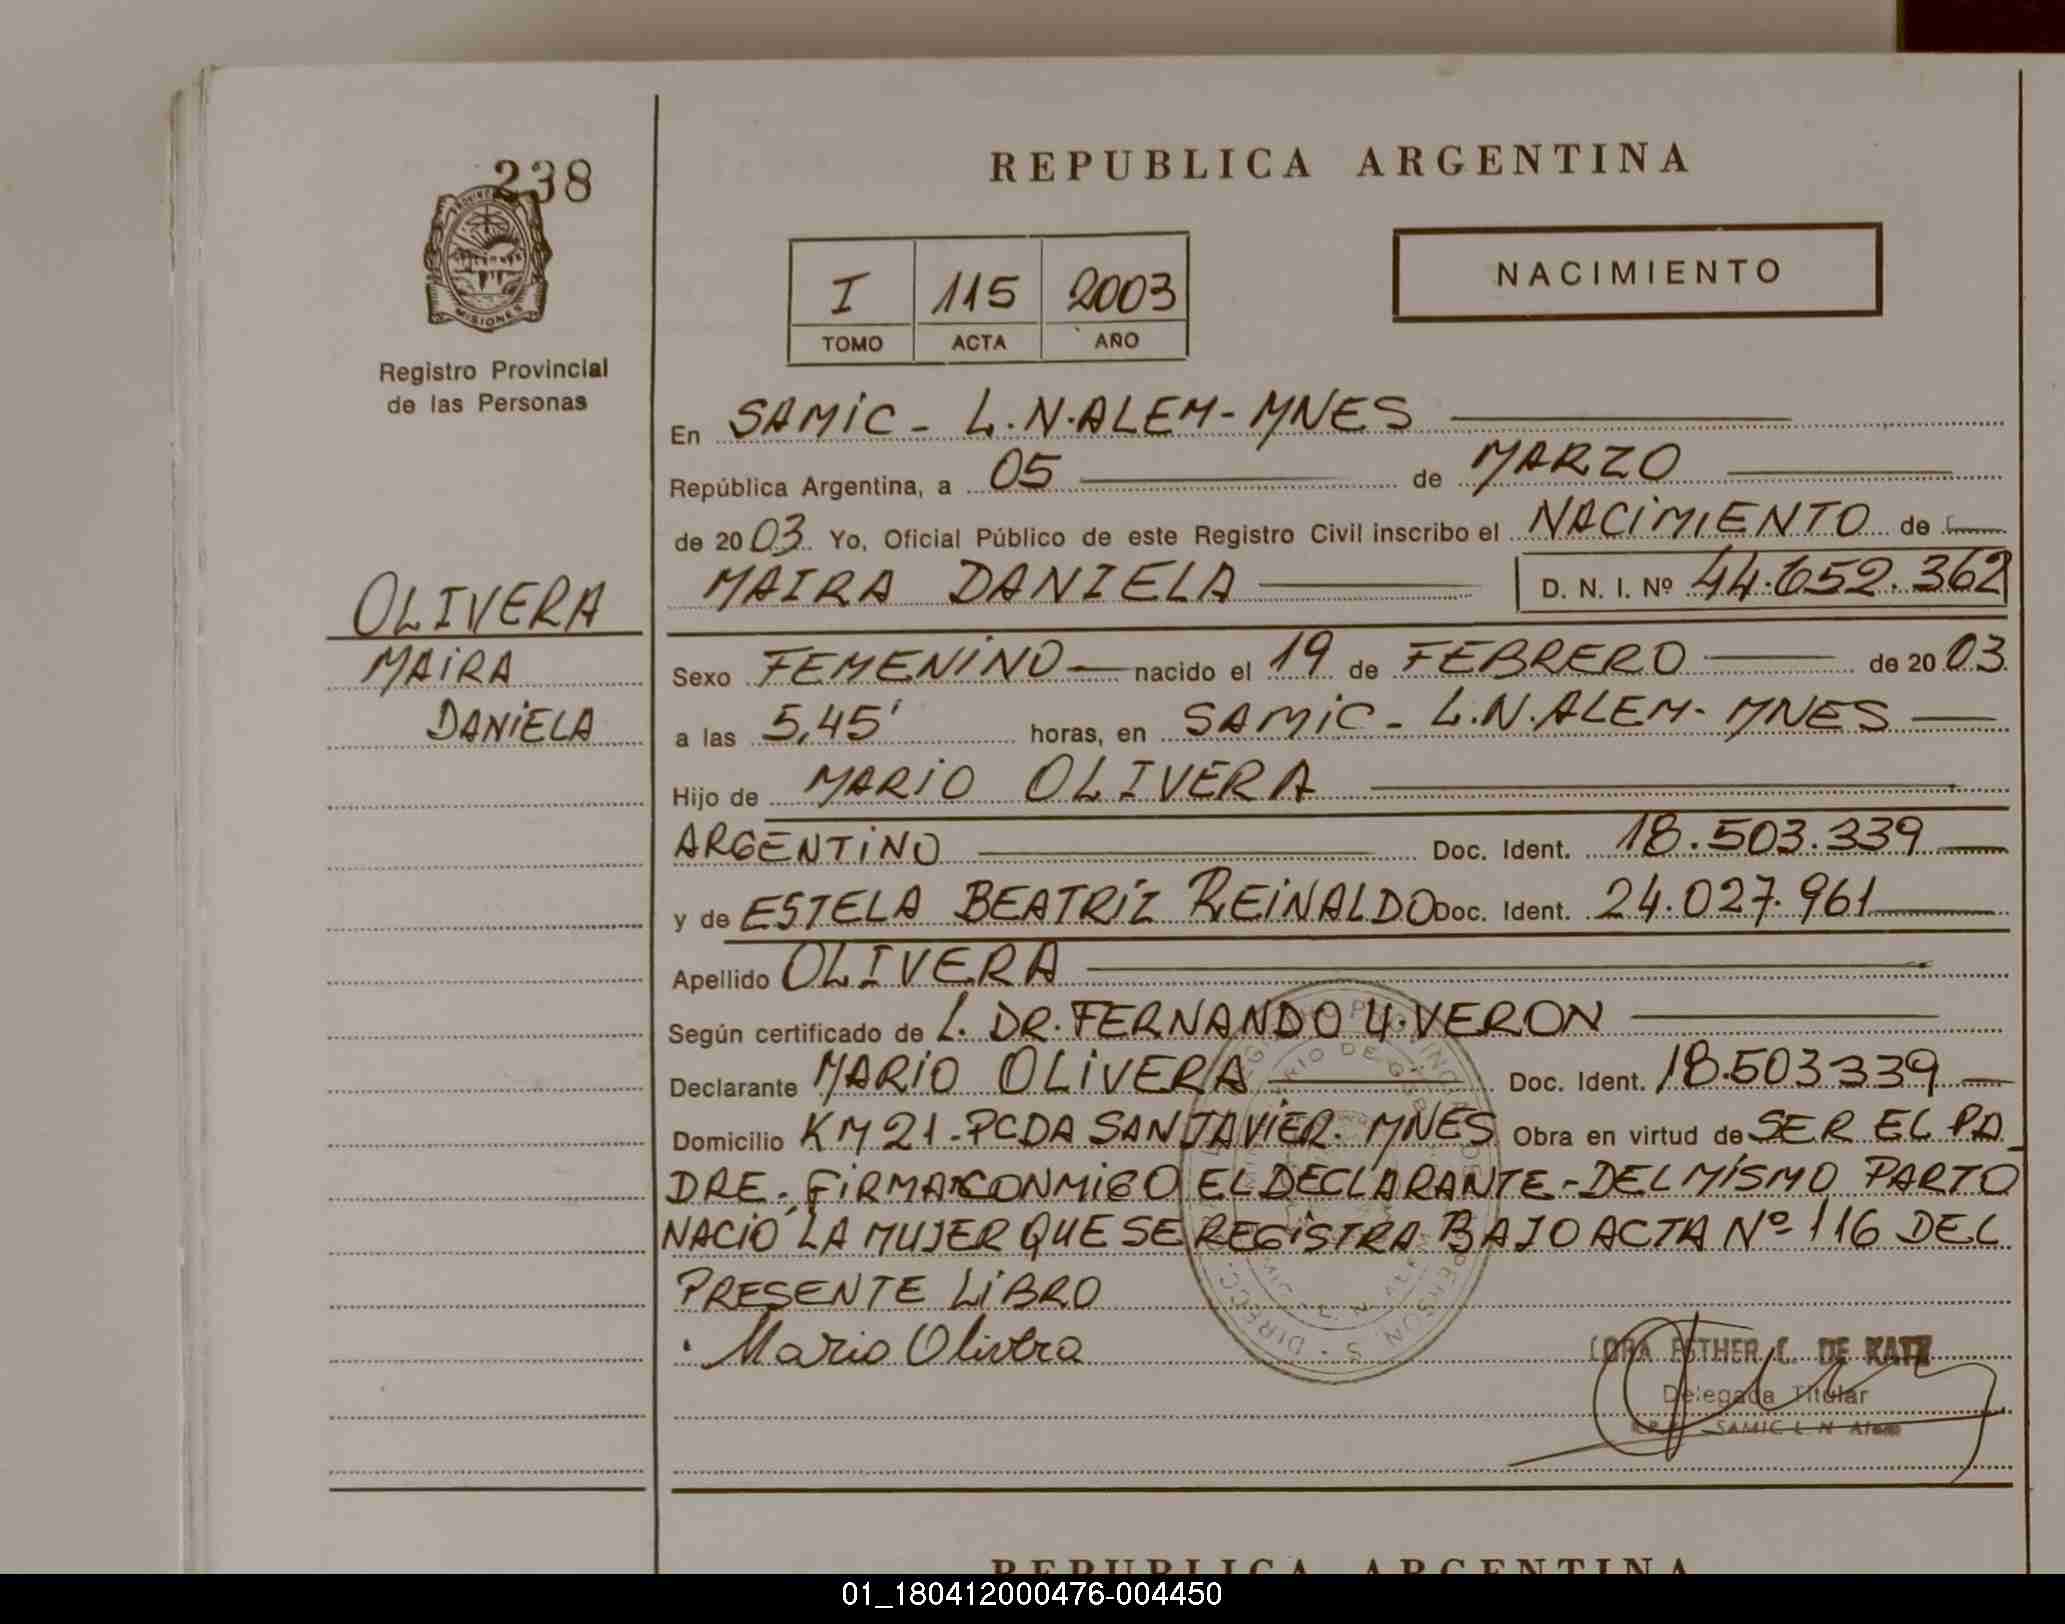 238
PROVINCIA
MISIONES
Registro Provincial
de las Personas
OLIVERA
MAIRA
DANIELA
REPUBLICA ARGENTINA
I 115 2003
TOMO ACTA AÑO
NACIMIENTO
En SAMIC - L.N.ALEM - MNES
República Argentina, a 05 de MARZO
de 2003 Yo, Oficial Público de este Registro Civil inscribo el NACIMIENTO de
MAIRA DANIELA D. N. I. Nº 44.652.362
Sexo FEMENINO nacido el 19 de FEBRERO de 2003
a las 5,45' horas, en SAMIC - L.N.ALEM - MNES
Hijo de MARIO OLIVERA
ARGENTINO Doc. Ident. 18.503.339
y de ESTELA BEATRIZ REINALDO Doc. Ident. 24.027.961
Apellido OLIVERA
Según certificado de L. DR. FERNANDO U. VERON
Declarante MARIO OLIVERA Doc. Ident. 18.503339
Domicilio KM 21 - PCDA SAN JAVIER. MNES Obra en virtud de SER EL PA_
DRE. FIRMA CONMIGO EL DECLARANTE - DEL MISMO PARTO
NACIÓ LA MUJER QUE SE REGISTRA BAJO ACTA Nº 116 DEL
PRESENTE LIBRO
Mario Olivera
ESTHER C. DE KATZ
Delegada Titular
SAMIC L. N. Alem
REPUBLICA ARGENTINA
01_180412000476-004450